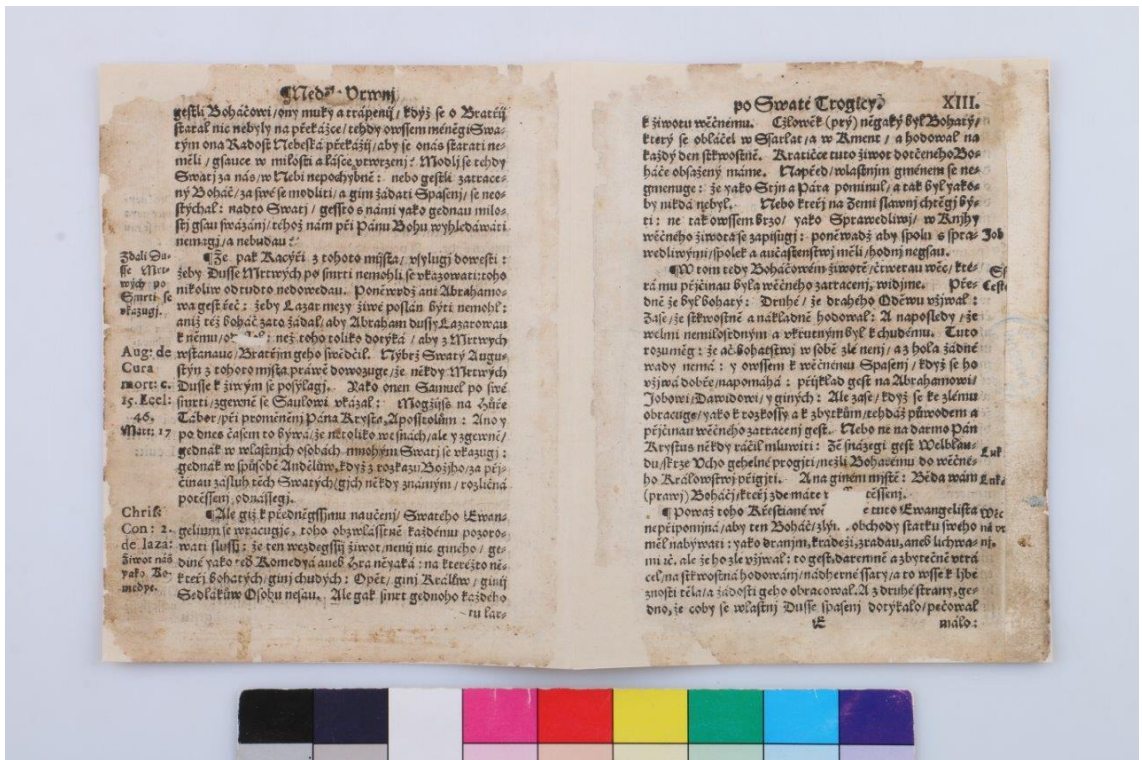 Neděle Prwnj
gestli Boháčowi / ony muky a trápenij / když se o Bratřij
staral nic nebyly na překážce / tehdy owssem méněgi Swa-
tým ona Radost Nebeská překážij / aby se onás starati ne-
měli / gsauce w milosti a lásce vtwrzenj: Modlj se tehdy
Swatj za nás / w Nebi nepochybně: nebo gestli zatrace-
ný Boháč / za swé se modliti / a gim žádati Spasenj / se neo-
stýchal: nadto Swatj / gessto s námi yako gednau milo-
stj gsau swázánj / téhož nám při Pánu Bohu wyhledáwati
nemagj / a nebudau?
Zdali Du-
sse Mrt-
wých po
Smrti se
vkazugj.
¶Že pak Kacýři z tohoto mjsta / vsylugj dowesti:
žeby Dusse Mrtwých po smrti nemohli se vkazowati: toho
nikoliw odtudto nedowedau. Poněwdž ani Abrahamo-
wa gest řeč: žeby Lazar mezy žiwé poslán býti nemohl:
aniž též boháč zato žádal / aby Abraham dussy Lazarowau
k němu / než toho toliko dotýká / aby z Mrtwých
wstanauc / Bratřjm geho swědčil. Nýbrž Swatý Augu-
stýn z tohoto mjsta prawě dowozuge / že někdy Mrtwých
Dusse k žiwým se posýlagj. Yako onen Samuel po swé
smrti / zgewně se Saulowi vkázal: Mogžijss na Hůře
Tábor / při proměněnj Pána Krysta, Aposstolům: Ano y
po dnes časem to býwá / že netoliko we snách / ale y zgewně /
gednák w wlastnjch osobách mnohým Swatj se vkazugj:
gednák w spůsobě Andělůw / když z rozkazu Božjho / za při-
činau zasluh těch Swatých / gjch někdy známým / rozličná
potěssenj, odnássegj.
Aug: de
Cura
mort: c.
15. Eccl:
46.
Matt: 17
¶Ale giž k předněgssjmu naučenj / Swatého Ewan-
gelium se wracugjc, toho obzwlásstně každému pozoro-
wati slussj: že ten wezdegssij žiwot / nenij nic giného / ge-
diné yako Komedya aneb Hra něyaká: na kteréžto ně-
kteřj bohatých / ginj chudých: Opět / ginj Králůw / ginij
Sedlákůw Osobu nesau. Ale gak smrt gednoho každého
tu lar-
Chris:
Con: 2.
de laza:
žiwot náš
yako Ko-
medye.
po Swaté Trogicy. XIII.
k žiwotu wěčnému. Člowěk (prý) něgaký byl Bohatý /
který se obláčel w Ssarlat / a w Kment / a hodowal na
každý den stkwostně. Kratičce tuto žiwot dotčeného Bo-
háče obsažený máme. Napřed / wlastnjm gménem se ne-
gmenuge: že yako Stjn a Pára pominul / a tak byl yako-
by nikdá nebyl. Nebo kteřj na Zemi slawnj chtěgj bý-
ti: ne tak owssem brzo / yako Sprawedliwj / w Knjhy
wěčného žiwota se zapisugj: poněwadž aby spolu s spra-
wedliwými / spolek a aučastenstwj měli / hodnj negsau.
Job
¶W tom tedy Boháčowém žiwotě / čtwerau wěc / kte-
rá mu přjčinau byla wěčného zatracenj, widjme. Pře-
dně že byl bohatý: Druhé / že drahého Oděwu vžjwal:
Zase / že stkwostně a nákladně hodowal: A naposledy / že
welmi nemilosrdným a vkrutným byl k chudému. Tuto
rozuměg: že ač bohatstwj w sobě zlé nenj / a z hola žádné
wady nemá: y owssem k wěčnému Spasenj / když se ho
vžjwá dobře / napomáhá: přjklad gest na Abrahamowi /
Jobowi / Dawidowi / y giných: Ale zase / když se ke zlému
obracuge / yako k rozkossy a k zbytkům / tehdáž půwodem a
přjčinau wěčného zatracenj gest. Nebo ne nadarmo Pán
Krystus někdy ráčil mluwiti: Že snázegi gest Welblau-
du / skrze Vcho gehelné progjti / nežli Bohatému do wěčné-
ho Králowstwj přigjti. A na giném mjstě: Běda wám
(prawj) Boháčj / kteřj zde máte těssenj.
Luk
Luk:
¶ Powaž toho Křestiané tuto Ewangelista
nepřipomjná / aby ten Boháč / zlým obchody statku swého
měl nabýwati: yako dranjm, kradežj, zradau, aneb lichwa-
mi ič. ale že ho zle vžjwal: to gest, daremně a zbytečně vtrá
cel / na stkwostná hodowánj / nádherné ssaty / a to wsse k ljbé
znosti těla / a žádosti geho obracowal. A z druhé strany, ge-
dno, že coby se wlastnj Dusse spasenj dotýkalo / pečowal
E málo: